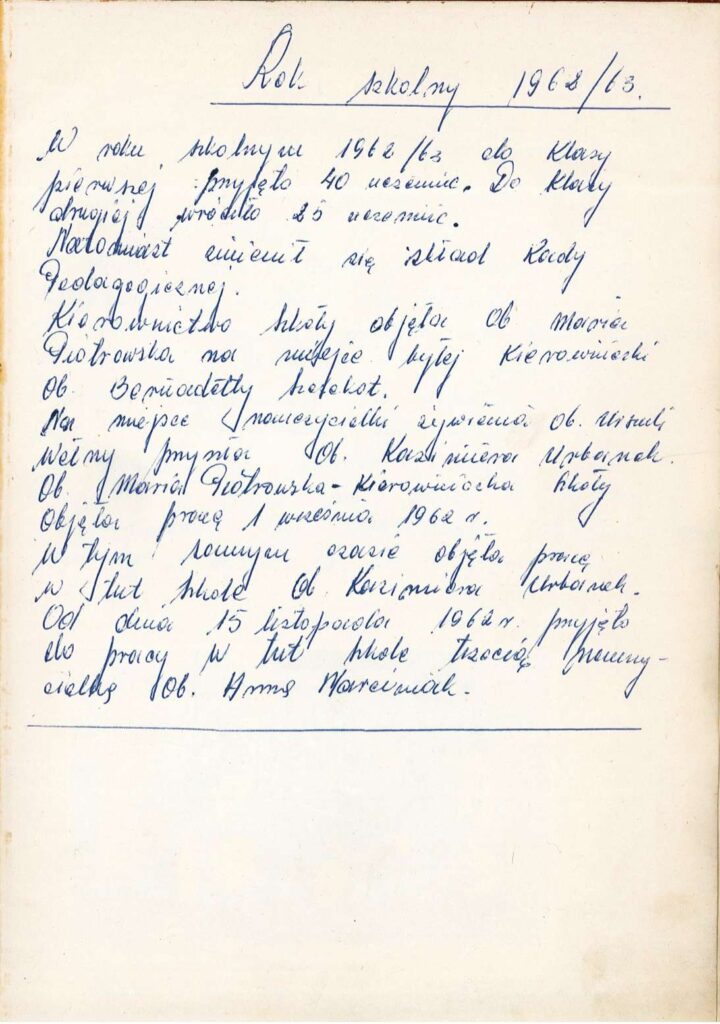 Rok szkolny 1962/63.
W roku szkolnym 1962/63 do Klasy
pierwszej przyjęto 40 uczennic. Do Klasy
drugiej wróciło 25 uczennic.
Natomiast zmienił się skład Rady
Pedagogicznej.
Kierownictwo szkoły objęła Ob Maria
Piotrowska na miejsce byłej Kierowniczki
Ob. Bernadetty
Na miejsce nauczycielki żywienia Ob. Urszuli
Wełny przyszła Ob. Kazimiera Urbanek.
Ob. Maria Piotrowska - Kierowniczka Szkoły
objęła pracę 1 września 1962 r.
W tym samym czasie objęła pracę
w tut szkole Ob. Kazimiera Urbanek.
Od dnia 15 listopada 1962 r. przyjęto
do pracy w tut szkole trzecią nauczy-
cielkę Ob. Annę Marciniak.